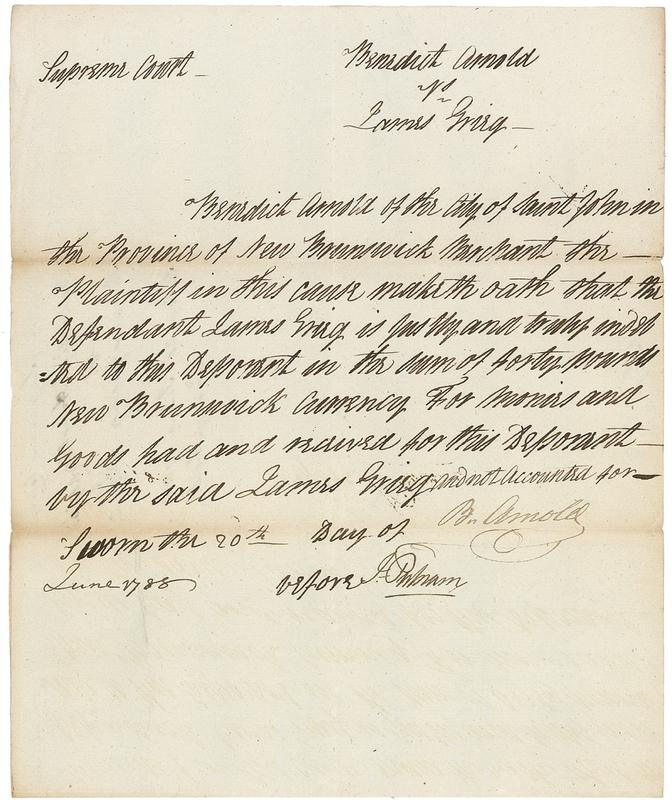 Supreme Court –
Benedict Arnold
vs
James Grieg –
Benedict Arnold of the City of Saint John in
the Province of New Brunswick Merchant the –
Plaintiff in this cause maketh oath that the
Defendant James Grieg is justly and truly indeb
=ted to this Deponent in the sum of forty pounds
New Brunswick Currency For monies and
Goods had and recived for this Deponant –
by the said James Grieg and not Accounted for –
Sworn the 20th Day of
B. Arnold
June 1788
before J. Putnam